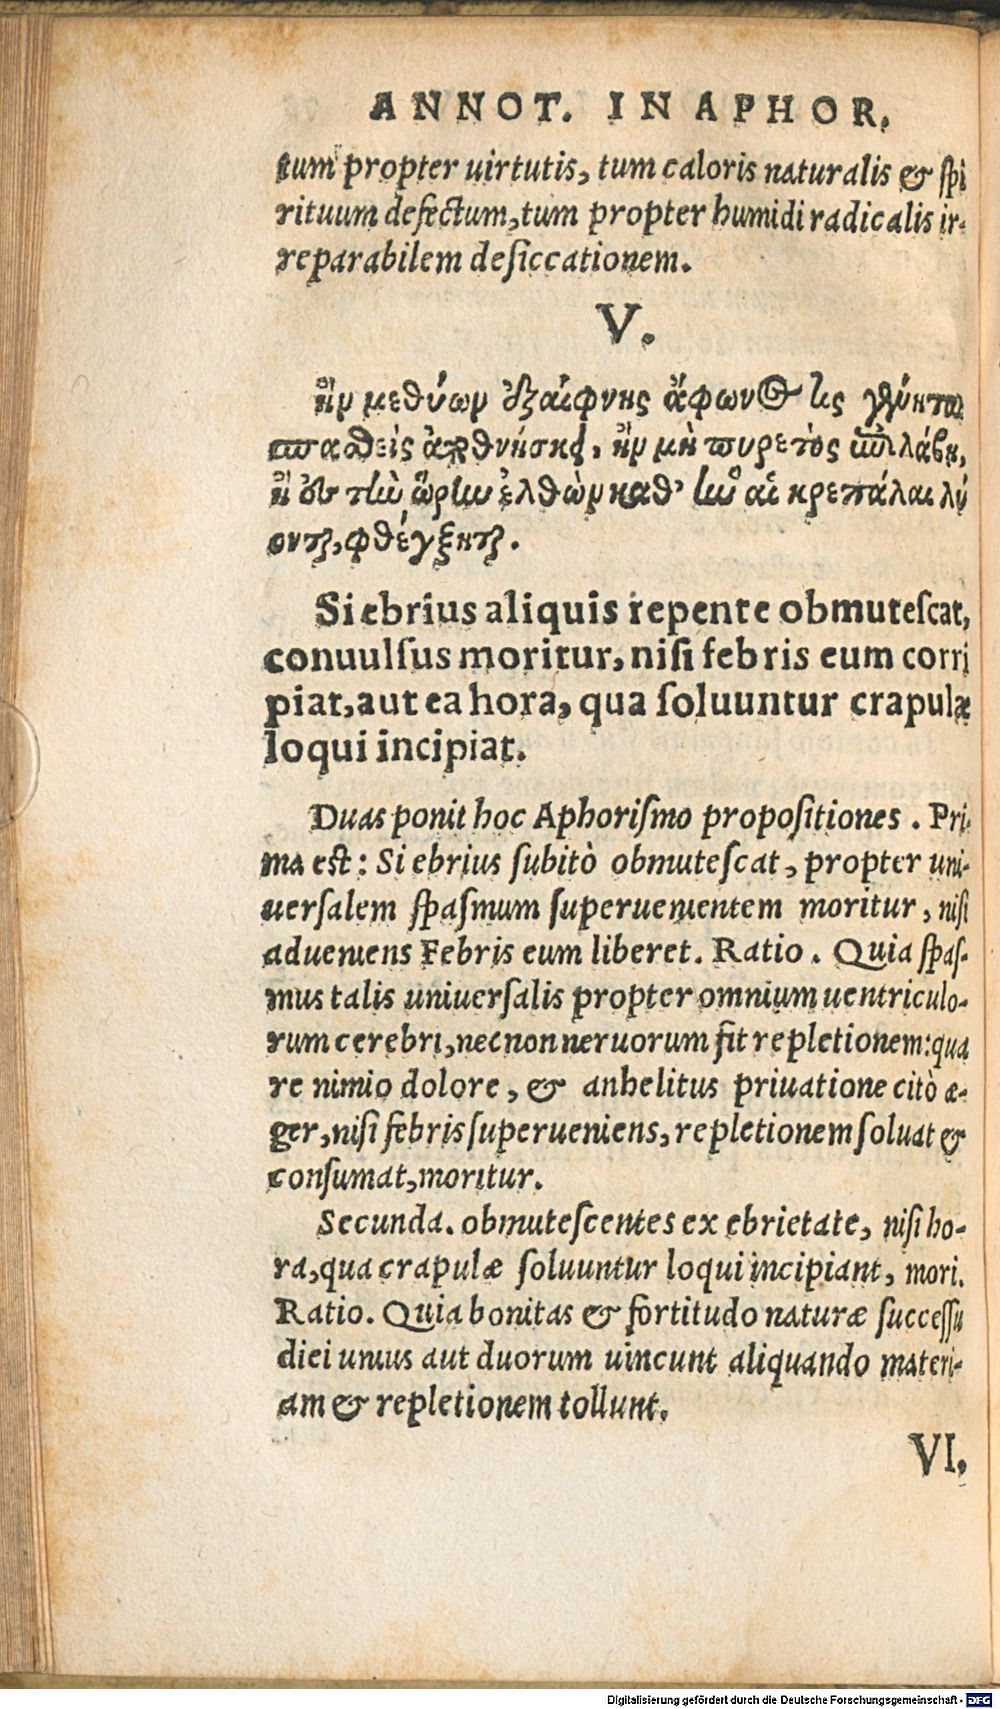 ANNOT. IN APHOR.
tum propter uirtutis, tum caloris naturalis & spi
rituum defectum, tum propter humidi radicalis ir-
reparabilem desiccationem.
V.
ἢν μεθύων ἐξαίφνης ἄφωνός τις γένηται
σπασθεὶς ἀποθνήσκει, ἢν μὴ πυρετὸς ἐπιλάβῃ,
ἢ ἐς τὴν ὥρην ἐλθὼν καθ' ἣν αἱ κρεπάλαι λύ
ονται, φθέγξηται.
Si ebrius aliquis repente obmutescat,
conuulsus moritur, nisi febris eum corri
piat, aut ea hora, qua soluuntur crapulæ
loqui incipiat.
Duas ponit hoc Aphorismo propositiones. Pri-
ma est: Si ebrius subitò obmutescat, propter uni-
uersalem spasmum superuenientem moritur, nisi
adueniens Febris eum liberet. Ratio. Quia spas-
mus talis uniuersalis propter omnium uentriculo-
rum cerebri, necnon neruorum fit repletionem: qua
re nimio dolore, & anhelitus priuatione citò æ-
ger, nisi febris superueniens, repletionem soluat &
consumat, moritur.
Secunda. obmutescentes ex ebrietate, nisi ho-
ra, qua crapulæ soluuntur loqui incipiant, mori.
Ratio. Quia bonitas & fortitudo naturæ successu
diei unius aut duorum uincunt aliquando materi-
am & repletionem tollunt.
VI.
Digitalisierung gefördert durch die Deutsche Forschungsgemeinschaft - DFG